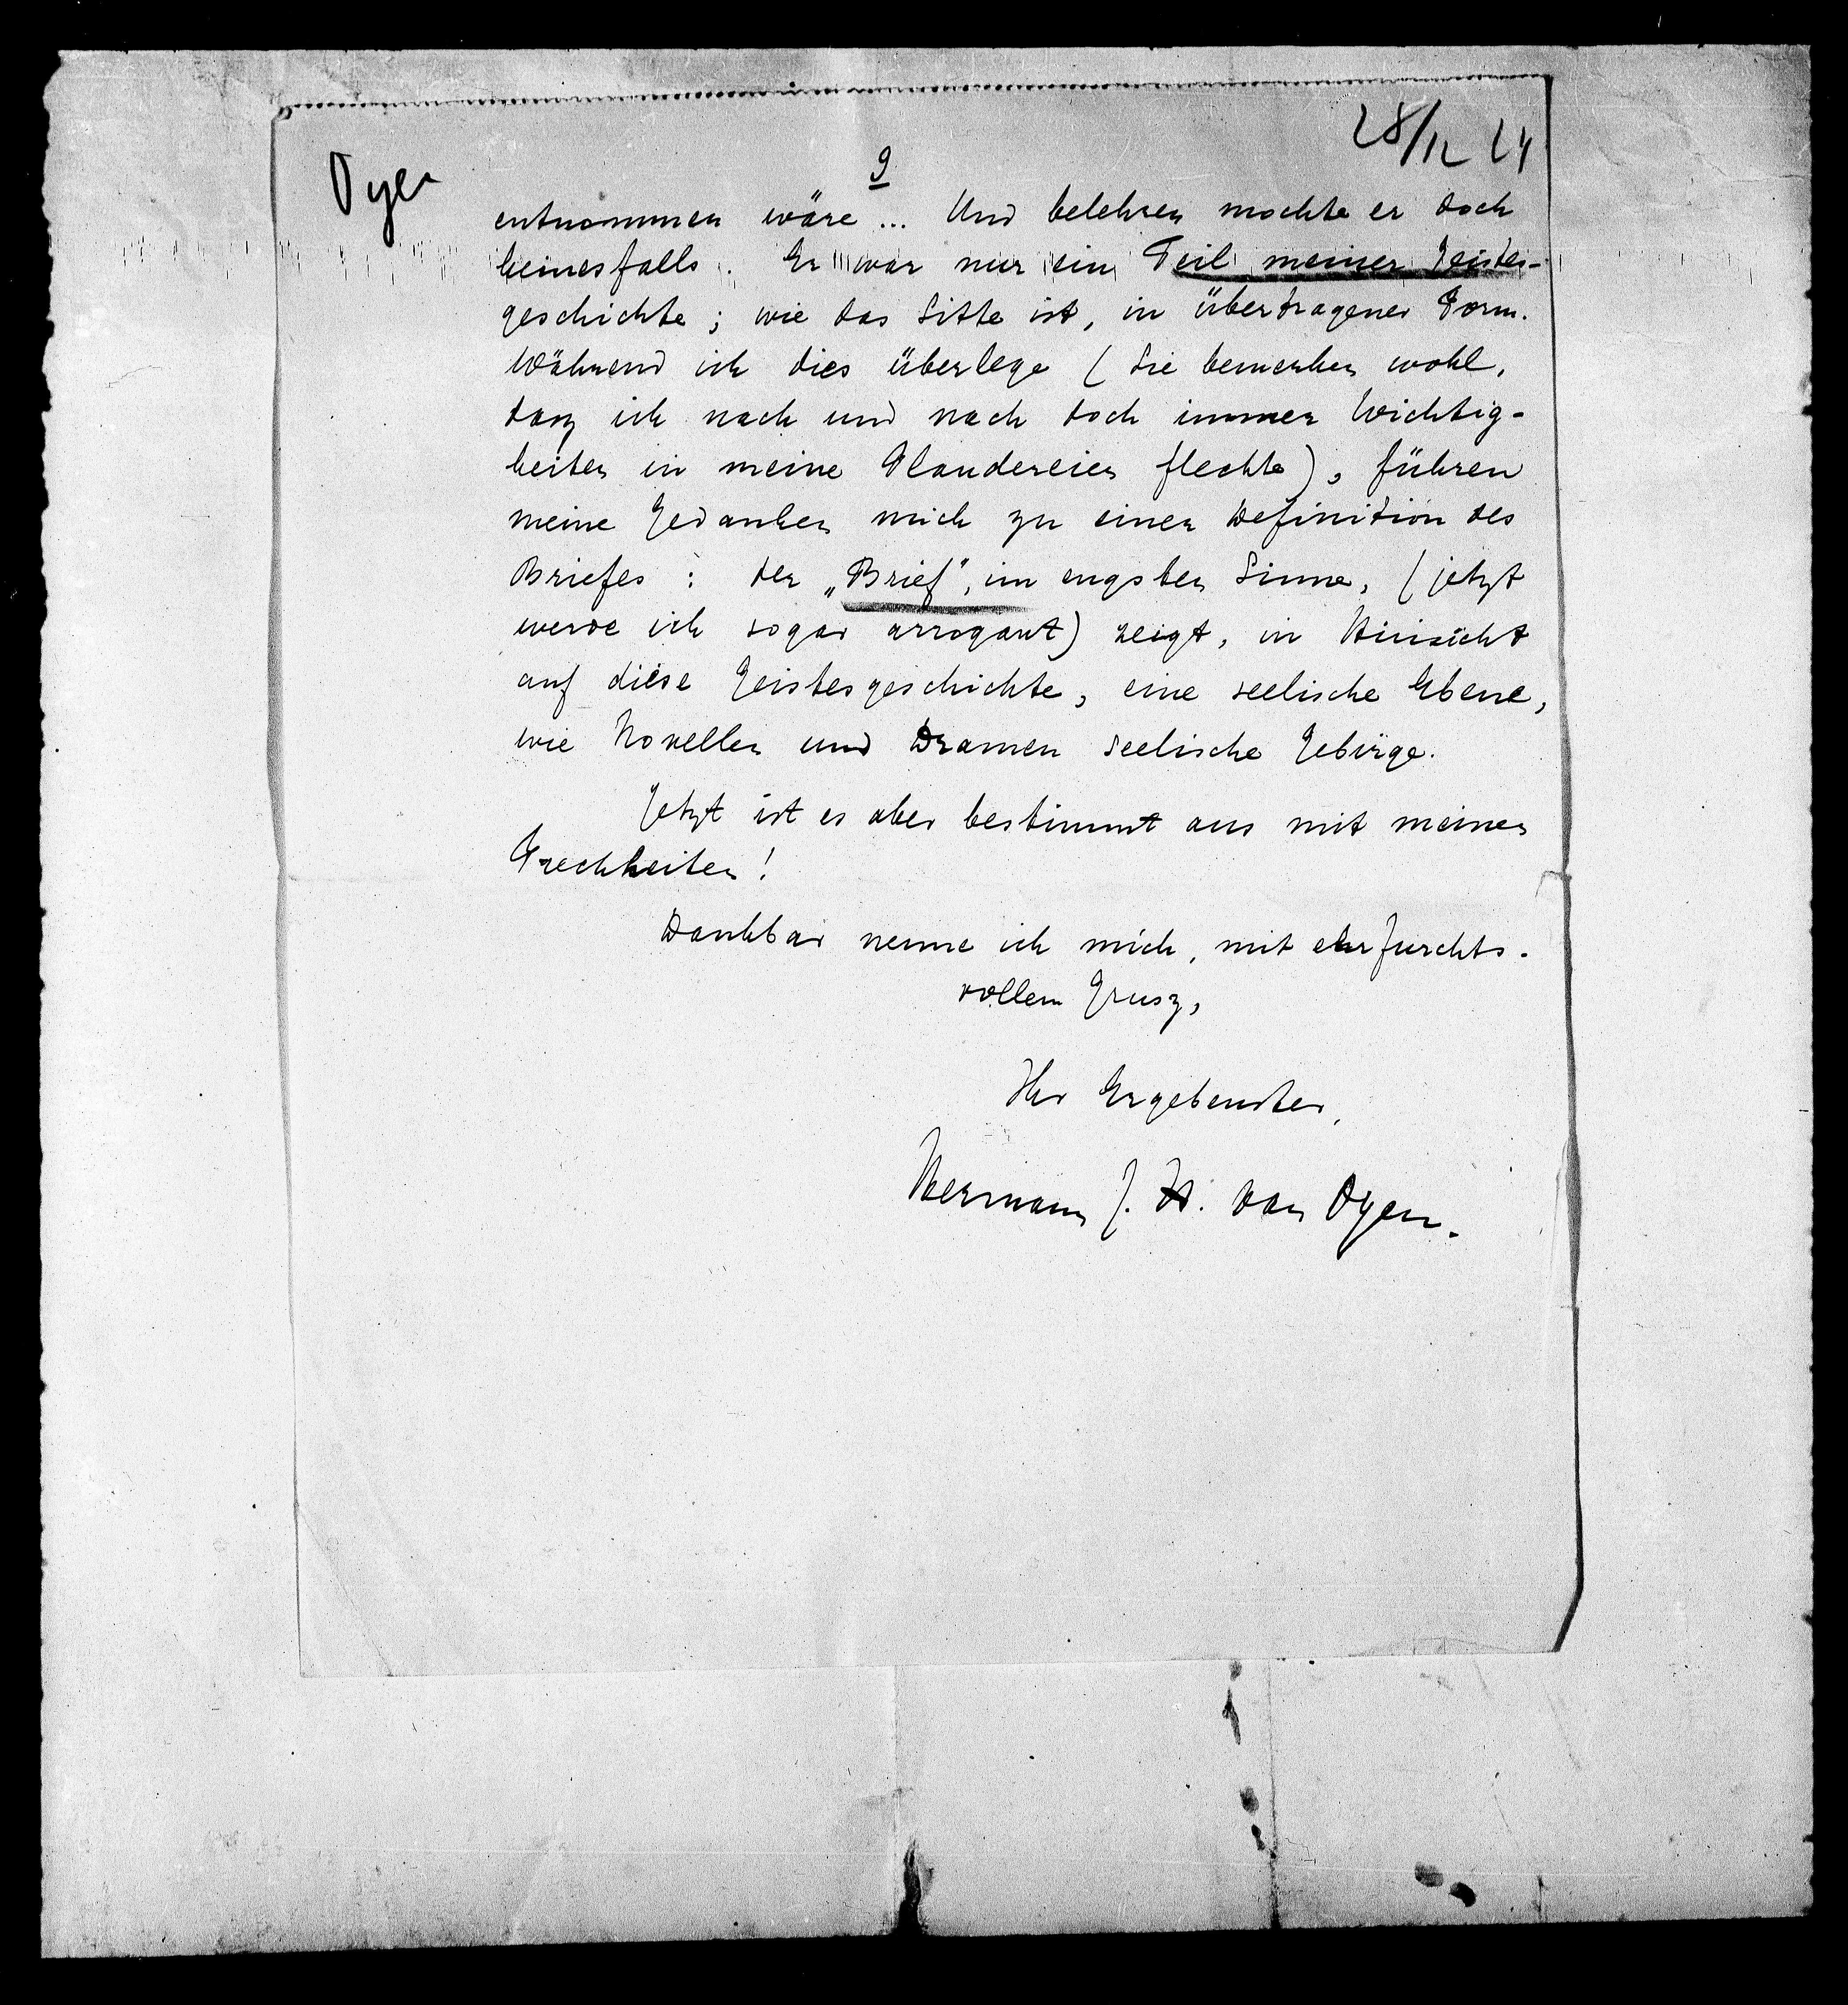 Oyen
28/12 24
9
entnommen wäre ... Und belehren mochte er doch
keinesfalls. Er war nur ein Teil meiner Geistes-
geschichte; wie das Sitte ist, in übertragener Form.
Während ich dies überlege (Sie bemerken wohl,
dasz ich nach und nach doch immer Wichtig-
keiten in meine Plaudereien flechte), führen
meine Gedanken mich zu einer Definition des
Briefes : der „Brief", im engsten Sinne, (jetzt
werde ich sogar arrogant) zeigt, in Hinsicht
auf diese Geistesgeschichte, eine seelische Ebene,
wie Novellen und Dramen seelische Gebirge.
Jetzt ist es aber bestimmt aus mit meinen
Frechheiten!
Dankbar nenne ich mich, mit ehrfurchts-
vollem Grusz,
Ihr Ergebenster,
Hermann J. H. van Oyen.